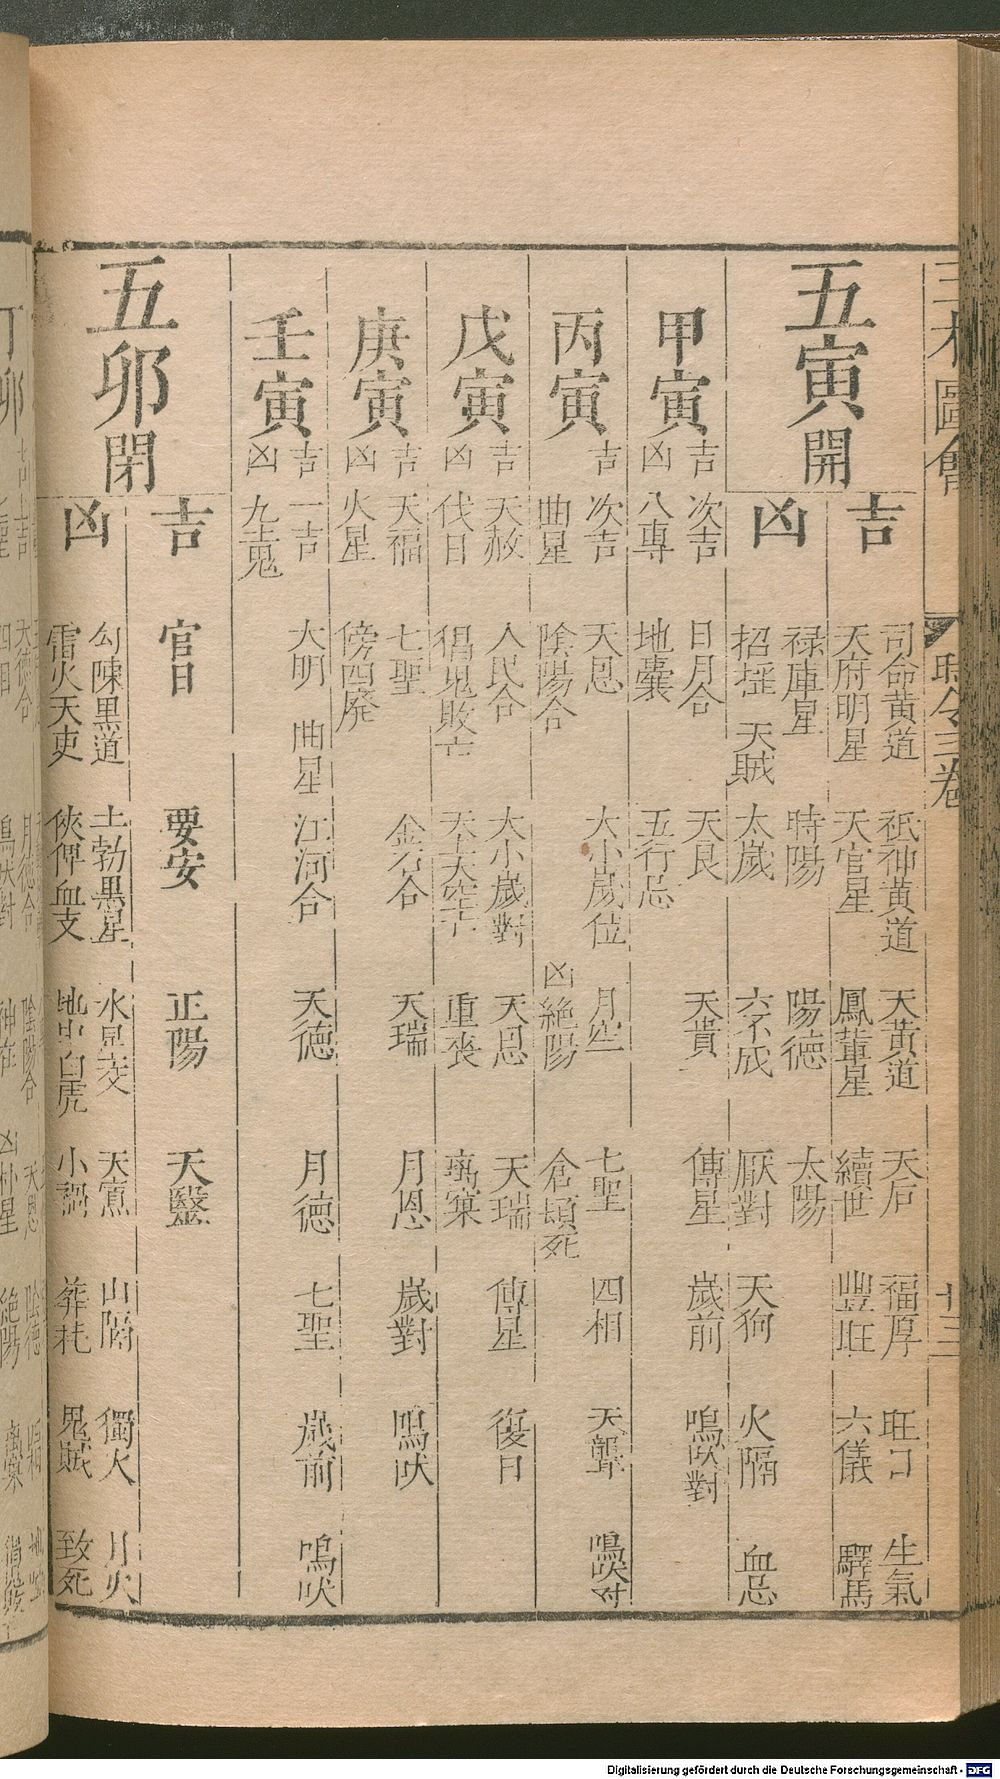 五寅開
吉
司命黃道 祇神黃道 天黃道 天后 福厚 旺日 生氣
天府明星 天官星 鳳輦星 續世 豐旺 六儀 驛馬
祿庫星 時陽 陽德 太陽
凶
招搖 天賊 太歲 六不成 厭對 天狗 火隔 血忌
甲寅
吉 次吉 日月合 天良 天貴 傳星 歲前 鳴吠對
凶 八專 地囊 五行忌
丙寅
吉 次吉 天恩 大小歲位 月空 七聖 四相 天聾 鳴吠對
曲星 陰陽合 凶 絕陽 倉頓死
戊寅
吉 天赦 人民合 大小歲對 天恩 天瑞 傳星 復日
凶 伐日 猖鬼敗亡 重喪
庚寅
吉 天福 七聖 金石合 天瑞 月恩 歲對 鳴吠
凶 火星 傍四廢
壬寅
吉 一吉 大明 曲星 江河合 天德 月德 七聖 歲前 鳴吠
凶 九丑鬼
五卯閉
吉 官日 要安 正陽 天醫
凶
勾陳黑道 土勃黑星 水 天 山隔 獨火 月火
雷火天吏 血支 白虎 小 鬼賊 致死
三才圖會
時令三卷
十三
Digitalisierung gefördert durch die Deutsche Forschungsgemeinschaft - DFG